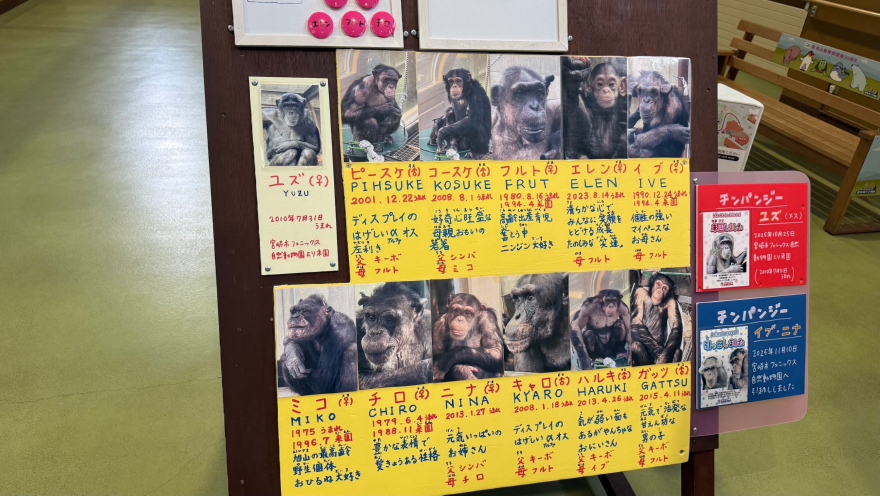 ユズ(♀)
YUZU
2010年7月31日
うまれ
宮崎市フェニックス
自然動物園より来園
ピースケ(♂)
PIHSUKE
2001.12.22うまれ
ディスプレイの
はげしいαオス
左利き
父 キーボ
母 フルト
コースケ(♂)
KOSUKE
2008.8.1うまれ
好奇心旺盛な
母親おもいの
若者
父 シンバ
母 ミコ
フルト(♀)
FRUT
1980.8.16うまれ
1996.4来園
高齢出産育児
奮とう中
ニンジン大好き
エレン(♀)
ELEN
2023.8.14うまれ
清らかな心で
みんなに笑顔を
とどける成長
たのしみな
父 キーボ
母 フルト
イブ(♀)
IVE
1990.12.24うまれ
個性の強い
マイペースな
お母さん
ミコ(♀)
MIKO
1975うまれ
1996.7来園
旭山の最高齢
野生個体
おひるね大好き
チロ(♀)
CHIRO
1979.6.4うまれ
1988.11来園
豊かな表情で
愛きょうある性格
ニナ(♀)
NINA
2013.1.27うまれ
元気いっぱいの
お姉さん
父 シンバ
母 チロ
キャロ(♂)
KYARO
2008.1.18うまれ
ディスプレイの
はげしいαオス
父 キーボ
母 フルト
ハルキ(♂)
HARUKI
2013.4.26うまれ
気が弱い面も
あるがやんちゃな
おにいさん
父 キーボ
母 イブ
ガッツ(♂)
GATTSU
2015.4.11うまれ
元気で活発な
甘えん坊な
男の子
父 キーボ
母 フルト
チンパンジー
ユズ(メス)
2025年10月25日
宮崎市フェニックス自然
動物園より来園
(2010年7月31日
うまれ)
チンパンジー
イブ・ニナ
2025年11月10日
宮崎市フェニックス
自然動物園へ
引越ししました